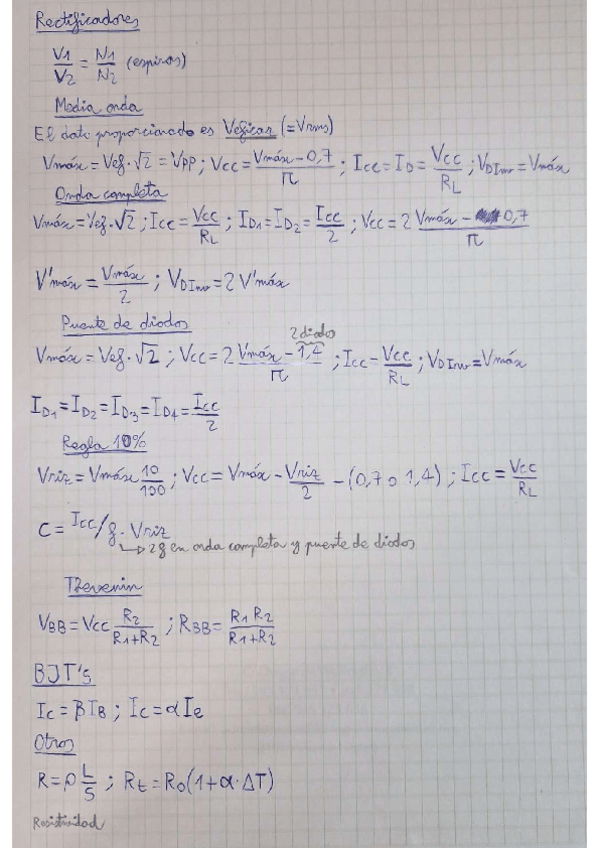 Rectificadores
V1/V2 = N1/N2 (espiras)
Media onda
El dato proporcionado es Veficaz (=Vrms)
Vmáx = Vef·√2 = Vpp ; Vcc = (Vmáx - 0,7)/π ; Icc = ID = Vcc/RL ; VDInv = Vmáx
Onda completa
Vmáx = Vef·√2 ; Icc = Vcc/RL ; ID1 = ID2 = Icc/2 ; Vcc = 2 (Vmáx - 0,7)/π
V'máx = Vmáx/2 ; VDInv = 2 V'máx
Puente de diodos
2 diodos
Vmáx = Vef·√2 ; Vcc = 2 (Vmáx - 1,4)/π ; Icc - Vcc/RL ; VDInv = Vmáx
ID1 = ID2 = ID3 = ID4 = Icc/2
Regla 10%
Vriz = Vmáx 10/100 ; Vcc = Vmáx - Vriz/2 - (0,7 o 1,4) ; Icc = Vcc/RL
C = Icc/f · Vriz
↳ 2f en onda completa y puente de diodos
Thevenin
VBB = Vcc R2/(R1+R2) ; RBB = R1 R2/(R1+R2)
BJT's
Ic = βIB ; Ic = αIe
Otros
R = ρ L/S ; Rt = R0(1+α·ΔT)
Resistividad